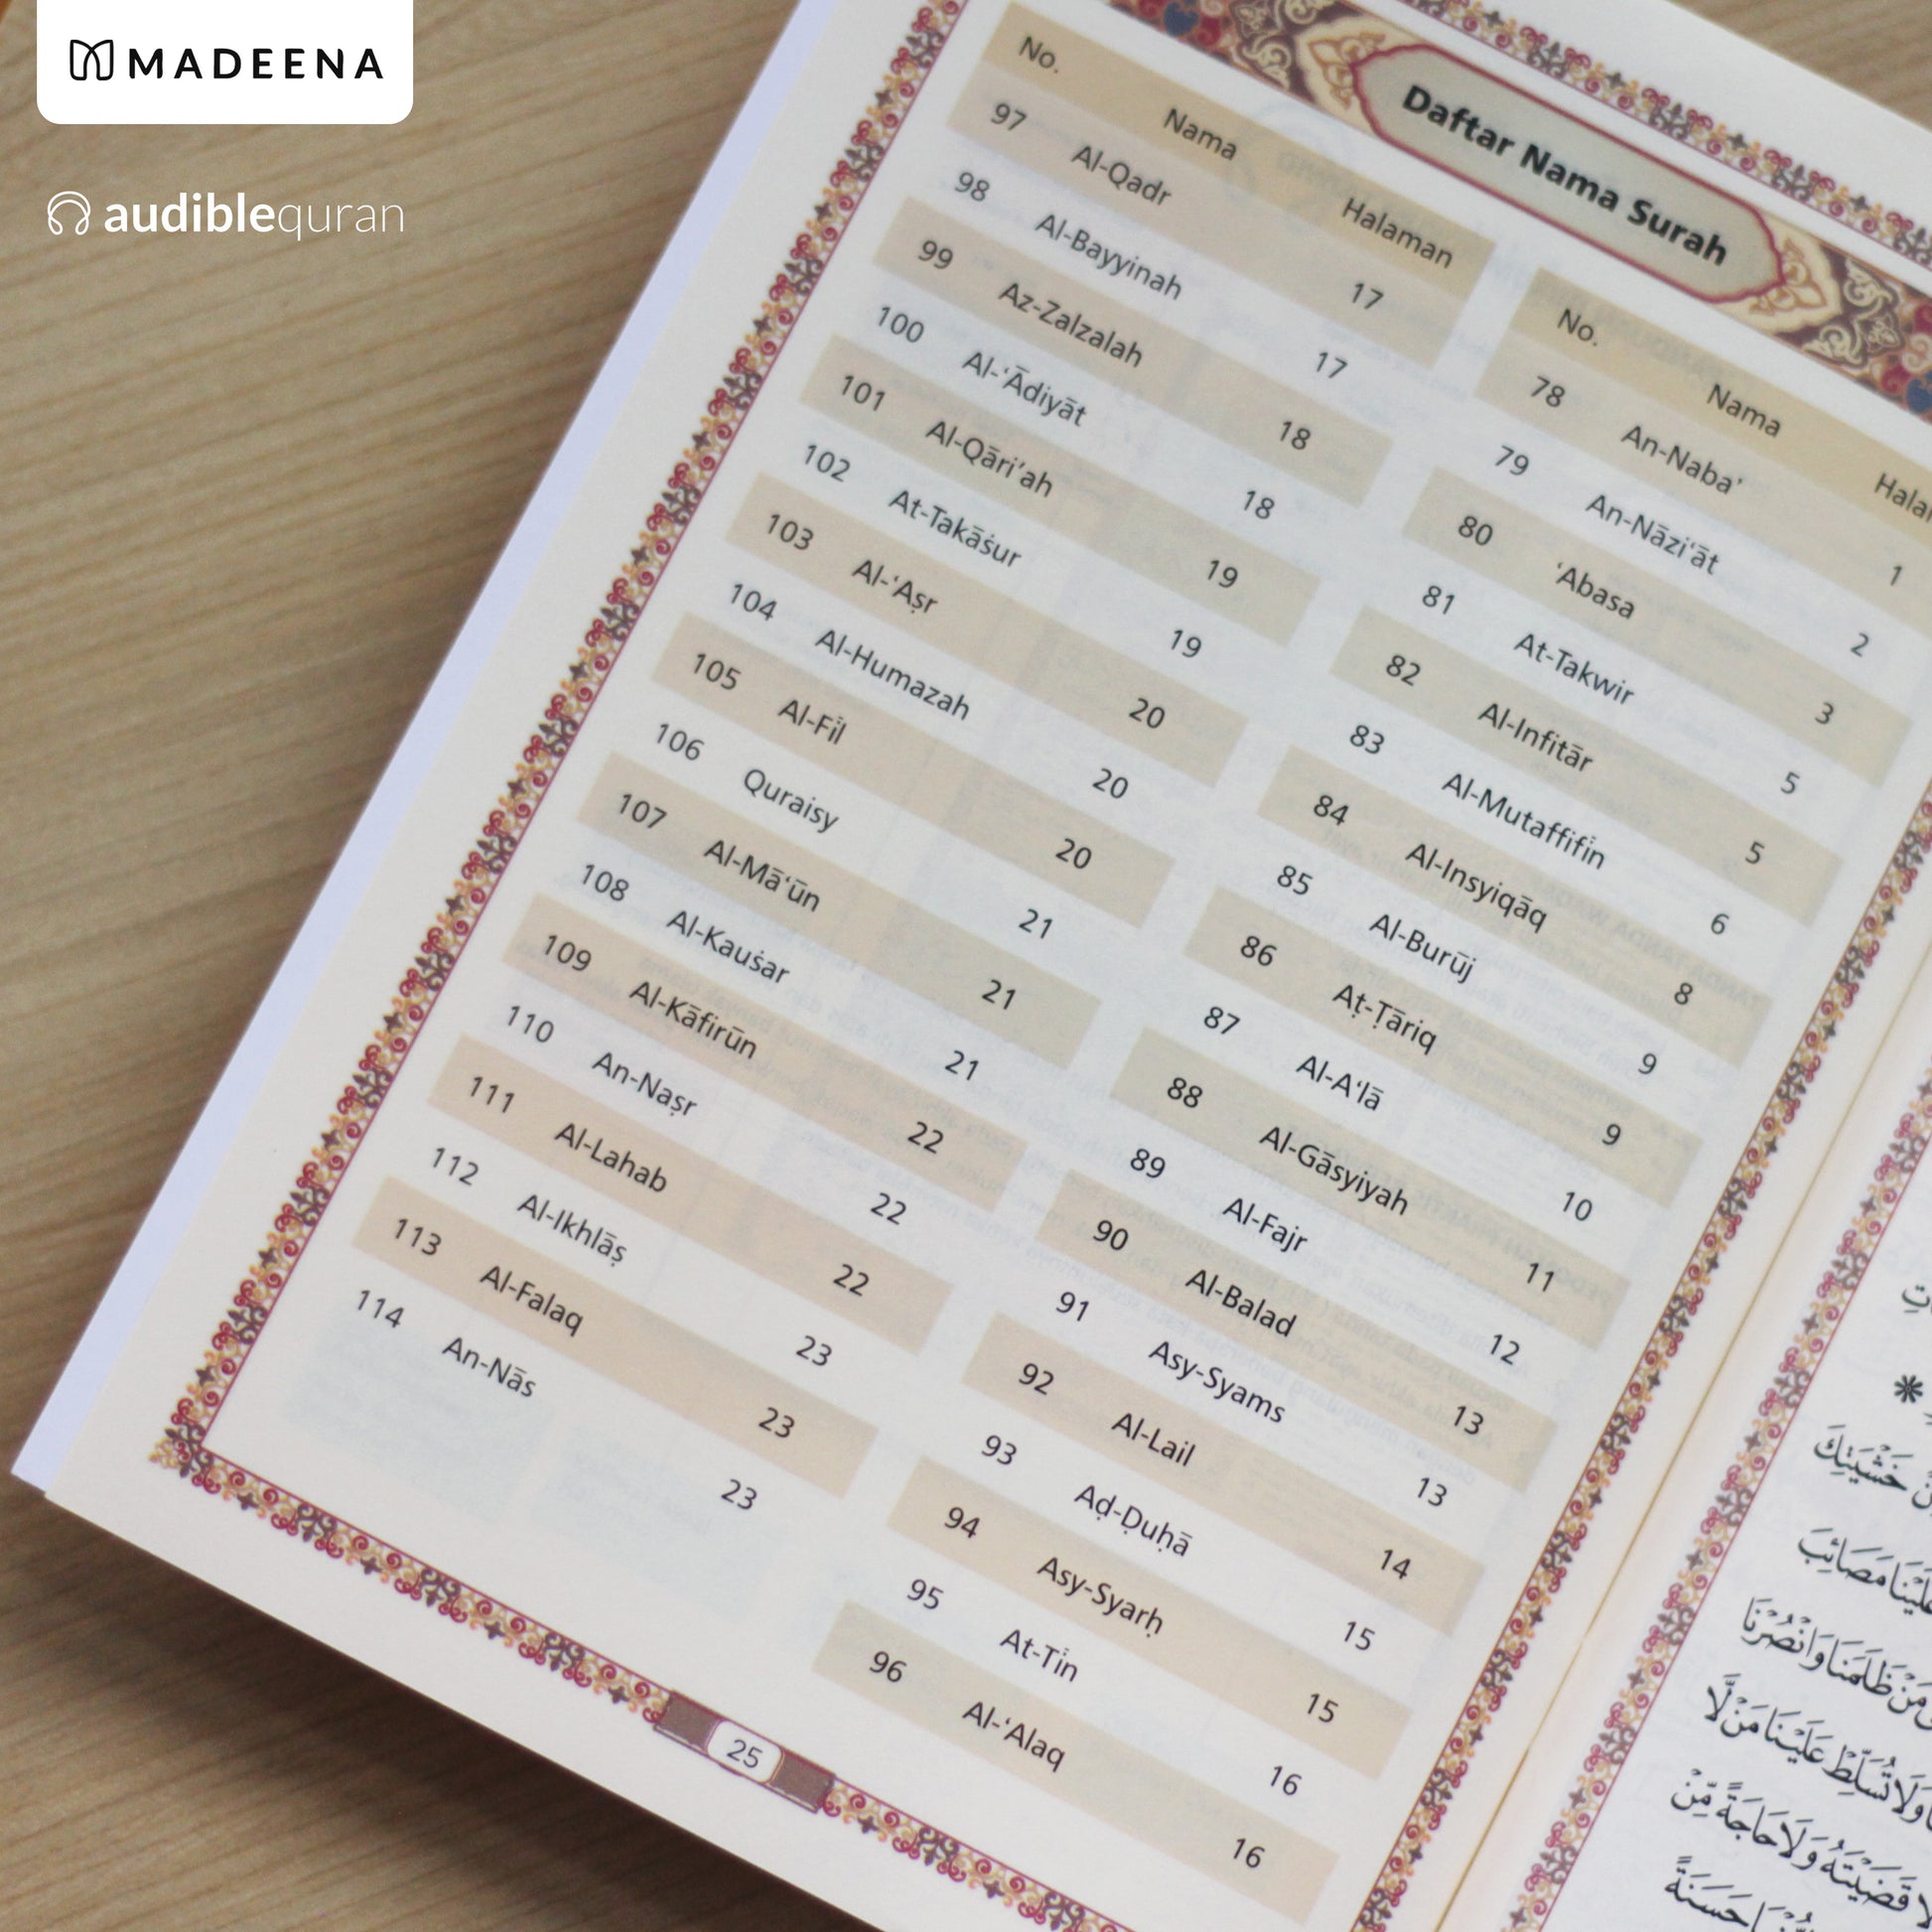 MADEENA
audiblequran
Daftar Nama Surah
No. Nama Halaman
97 Al-Qadr 17
98 Al-Bayyinah 17
99 Az-Zalzalah 18
100 Al-‘Ādiyāt 18
101 Al-Qāri’ah 19
102 At-Takāṡur 19
103 Al-‘Aṣr 20
104 Al-Humazah 20
105 Al-Fīl 20
106 Quraisy 21
107 Al-Mā‘ūn 21
108 Al-Kauṡar 21
109 Al-Kāfirūn 22
110 An-Naṣr 22
111 Al-Lahab 22
112 Al-Ikhlāṣ 23
113 Al-Falaq 23
114 An-Nās 23
No. Nama
78 An-Naba’ 1
79 An-Nāzi‘āt 2
80 ‘Abasa 3
81 At-Takwir 5
82 Al-Infitār 5
83 Al-Mutaffifīn 6
84 Al-Insyiqāq 8
85 Al-Burūj 9
86 Aṭ-Ṭāriq 9
87 Al-A‘lā 10
88 Al-Gāsyiyah 11
89 Al-Fajr 12
90 Al-Balad 13
91 Asy-Syams 13
92 Al-Lail 14
93 Aḍ-Ḍuḥā 15
94 Asy-Syarḥ 15
95 At-Tīn 16
96 Al-‘Alaq 16
25
خَشْيَتِكَ
عَلَيْنَا مَصَائِبَ
مَنْ ظَلَمَنَا وَانْصُرْنَا
وَلَا تُسَلِّطْ عَلَيْنَا مَنْ لَّا
قَضَيْتَهُ وَلَا حَاجَةً مِّنْ
حَسَنَةً